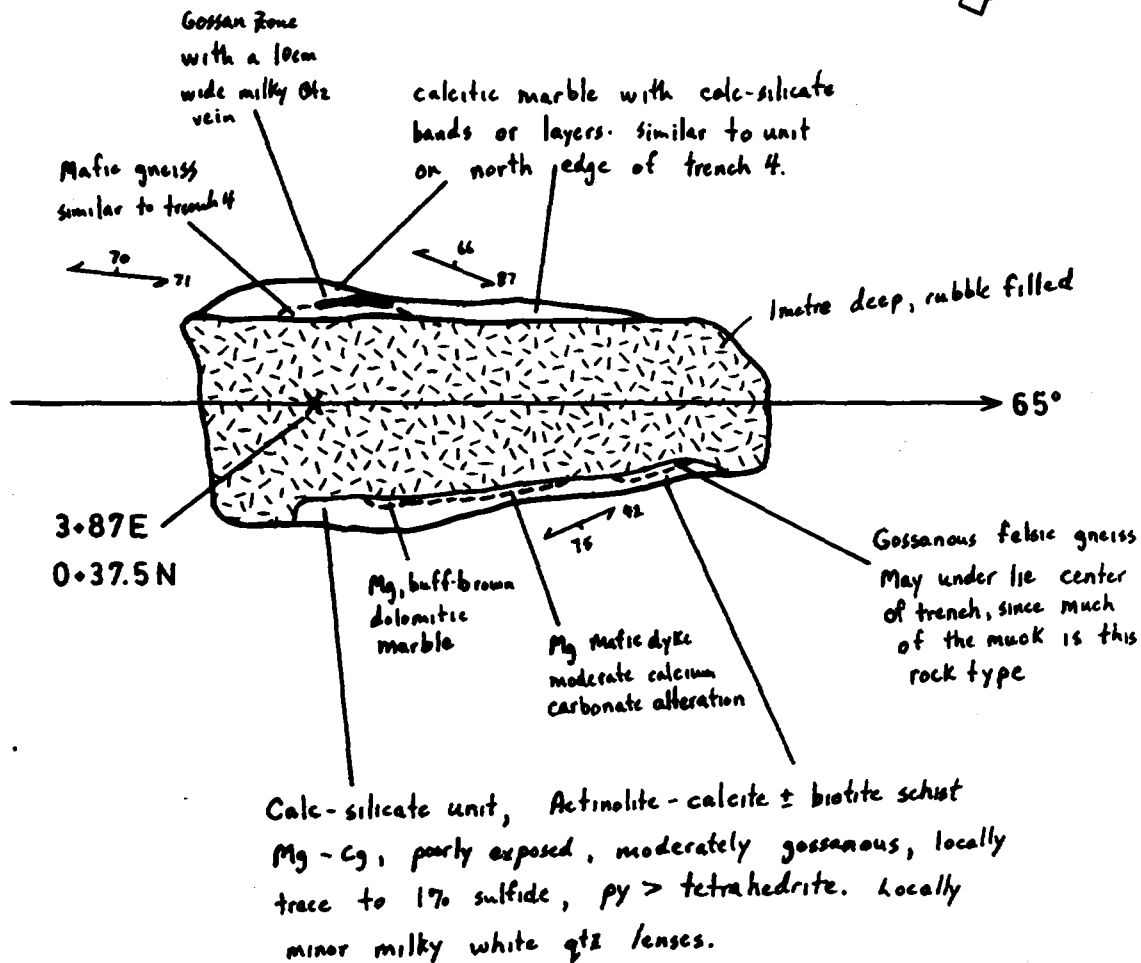 Gossan Zone
with a 10cm
wide milky Qtz
vein
calcitic marble with calc-silicate
bands or layers. similar to unit
on north edge of trench 4.
Mafic gneiss
similar to trench 4
70
71
66
87
1metre deep, rubble filled
65°
3+87E
0+37.5N
Mg, buff-brown
dolomitic
marble
42
75
Mg Mafic dyke
moderate calcium
carbonate alteration
Gossanous felsic gneiss
May under lie center
of trench, since much
of the muck is this
rock type
Calc-silicate unit, Actinolite-calcite ± biotite schist
Mg-Cg, poorly exposed, moderately gossanous, locally
trace to 1% sulfide, py > tetrahedrite. Locally
minor milky white qtz lenses.